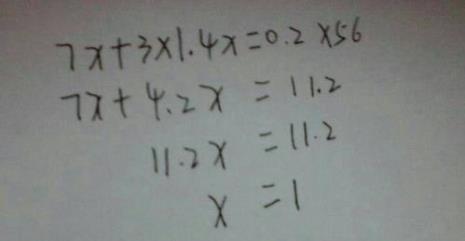 7x+3×1.4x=0.2×56
7x+4.2x=11.2
11.2x=11.2
x=1